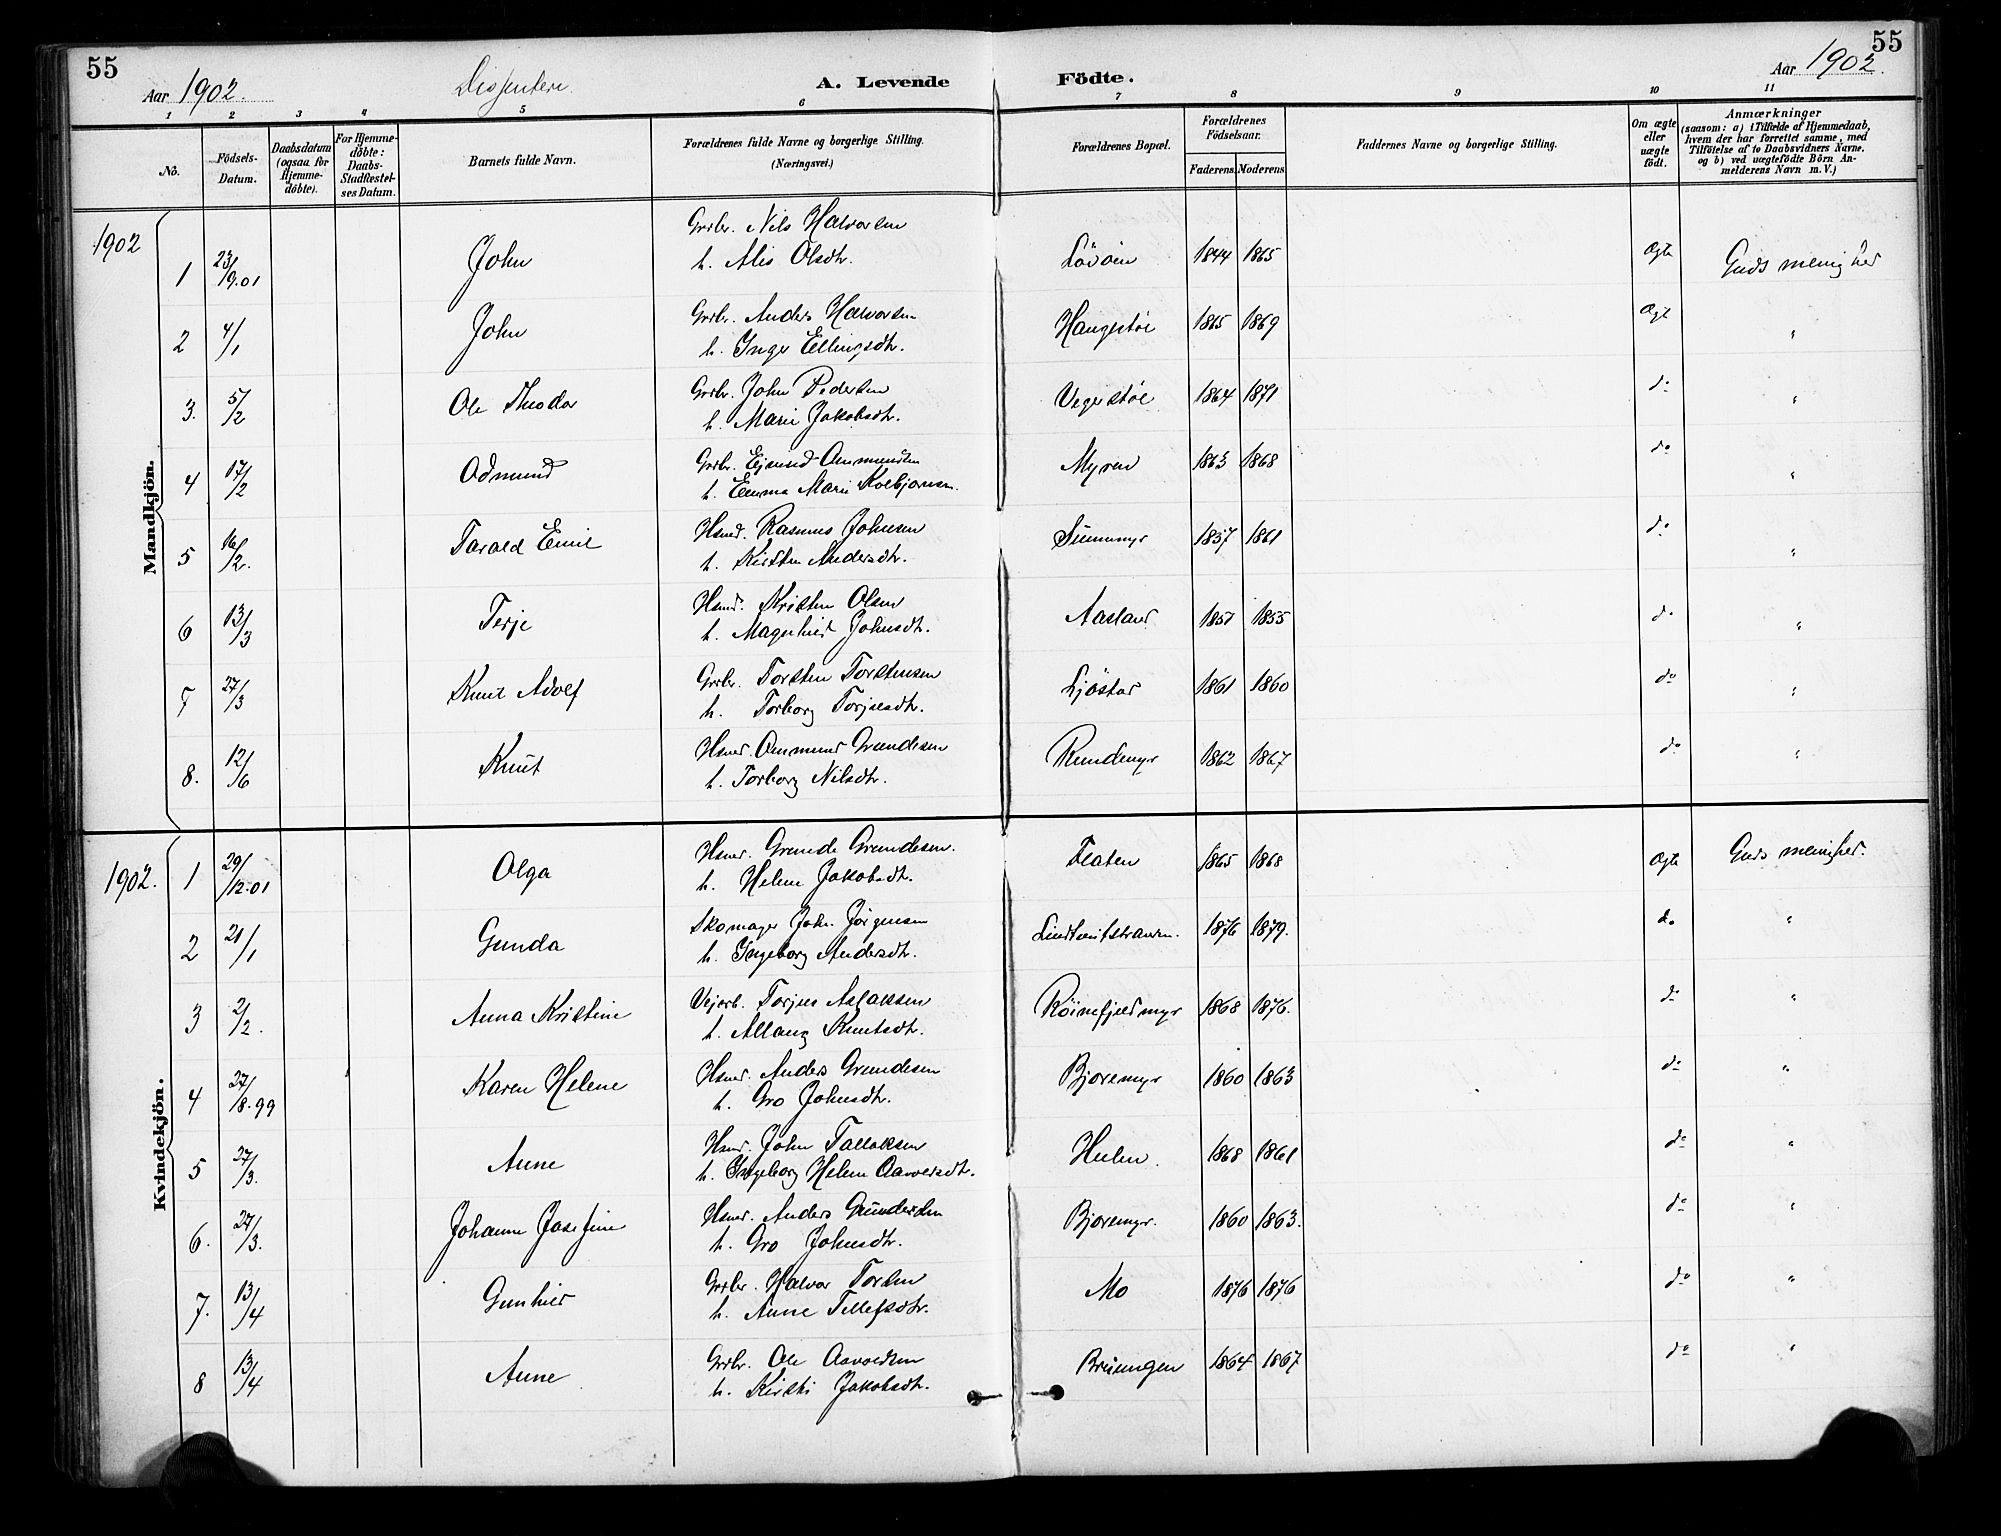 55
55
Aar 1902.
Dissentere.
A. Levende
Födte.
Aar 1902.
1 2 3 4 5 6 7 8 9 10 11
No.
Födsels-
Datum.
Daabsdatum
(ogsaa för
Hjemme-
döbte).
For Hjemme-
döbte:
Daabs-
Stadfæstel-
ses Datum.
Barnets fulde Navn.
Forældrenes fulde Navne og borgerlige Stilling.
(Næringsvei.)
Forældrenes Bopæl.
Forældrenes
Födselsaar.
Faderens. Moderens
Faddernes Navne og borgerlige Stilling.
Om ægte
eller
uægte
født.
Anmærkninger
(saasom: a) i Tilfælde af Hjemmedaab,
hvem der har forrettet samme, med
Tilföielse af to Daabsvidners Navne.
og b) ved uægtefödte Börn An-
melderens Navn m.V.)
Mandkjön.
1902
1 23/9.01 John Grdbr. Nils Halvorsen
h. Alis Olsdtr. Lövöen 1844 1865 Ægte Guds menighed
2 4/1 John Grdbr. Anders Halvorsen
h. Inger Ellingsdtr. Haugestöl 1865 1869 Ægt "
3. 5/2 Ole Theodor Grdbr. John Pedersen
h. Marie Jakobsdtr. Vegerstöl 1864 1871 do "
4 17/2 Odmund Grdbr. Ejsund Ommundsen
h. Emma Marie Kolbjörnsen. Myren 1863 1868 do "
5 16/2. Tarald Emil Hsmd. Rasmus Johnsen
h. Kirsten Andersdtr. 1857 1861 do "
6 13/3 Terje Hsmd. Kristen Olsen
h. Magnhild Johnsdtr. Aasland 1851 1855 do "
7 27/3 Knut Adolf Grdbr. Torsten Torstensen
h. Torborg Torjusdtr. Ljöstad 1861 1860 do "
8. 12/6 Knut Hsmd. Ommund Grundesen
h. Torborg Nilsdtr. Rundemyr 1862 1867 do "
Kvindekjön.
1902.
1 29/12.01 Olga Hsmd. Grunde Grundesen.
h. Helene Jakobsdtr. Flaten 1865 1868 Ægte Guds menighed.
2 21/1 Gunda Skomager John Jörgensen
h. Ingeborg Andersdtr. Lindtveitstranden. 1876 1879. do "
3 2/2. Anna Kristine Vejarb. Torjus Aslaksen
h. Allaug Knutsdtr. Röinefjeldmyr 1868 1876. do "
4 27/8.99 Karen Helene Hsmd. Anders Grundesen
h. Gro Johnsdtr. Bjoremyr 1860 1863 do "
5 27/3. Anne Hsmd. John Tallaksen
h. Ingeborg Helene Aavoldsdtr. Hulen. 1868 1861 do "
6. 27/3. Johanne Josefine Hsmd. Anders Gundersen
h. Gro Johnsdtr. Bjoremyr. 1860 1863. do "
7. 13/4 Gunhild Grdbr. Halvor Torsen
h. Anne Tellefsdtr. Mo 1876 1876 do "
8 13/4 Anne Grdbr. Ole Aavoldsen
h. Kirsti Jakobsdtr. Brüungen 1864 1867 do "